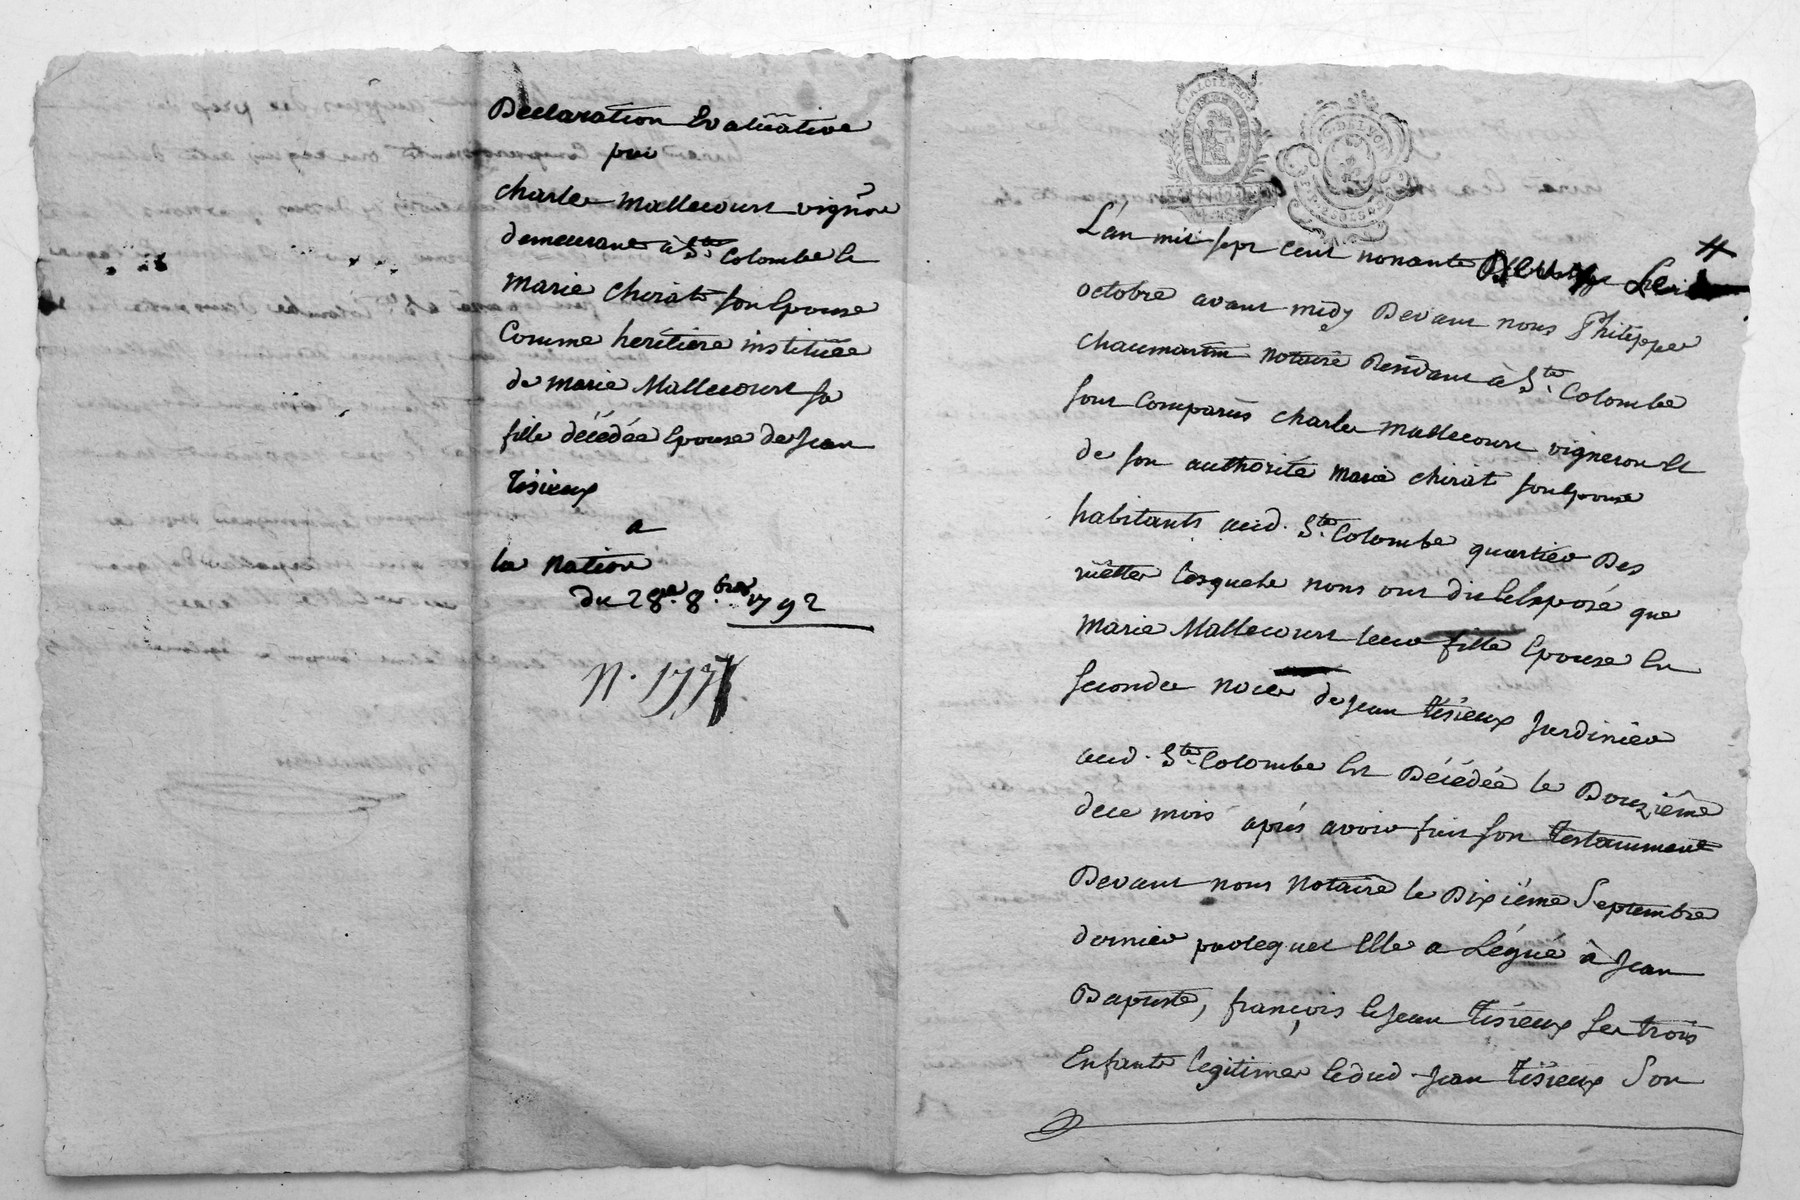 Declaration Evaluative
par
charles Mallecourt vigñon
demeurant à Ste Colombe et
Marie chirat son Epouse
Comme heritiere instituée
de marie Mallecourt sa
fille décédée Epouse de Jean
tisieux
a
la Nation
du 28e. 8.bre 1792
N. 177
L'an mil sept cent nonante Deux Le #
octobre avant midy Devant nous Philippe
chaumartin notaire Rendant à Ste. Colombe
sont Comparus charles Mallecourt vigneron et
de son authorité Marie chirat son Epouse
habitants aud. Ste. Colombe quartier Des
nous ont dit et Exposé que
Marie Mallecourt leur fille Epouse En
seconde noce de Jean tisieux Jardinier
aud. Ste. Colombe Est Décédée le Douzième
de ce mois après avoir fait son testamment
Devant nous Notaire le Dixième Septembre
dernier par lequel Elle a Légué à Jean
Baptiste, françois et Jean tisieux ses trois
Enfants legitimes et dud Jean tisieux Son